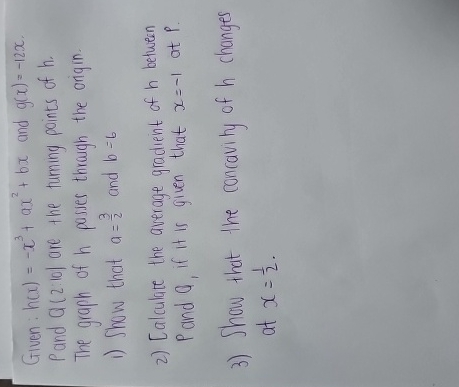 Given: h(x) = -x³ + ax² + bx and g(x) = -12x.
P and Q(2;10) are the turning points of h.
The graph of h passes through the origin.
1) Show that a = 3/2 and b = 6
2) Calculate the average gradient of h between
P and Q, if it is given that x = -1 at P.
3) Show that the concavity of h changes
at x = 1/2.